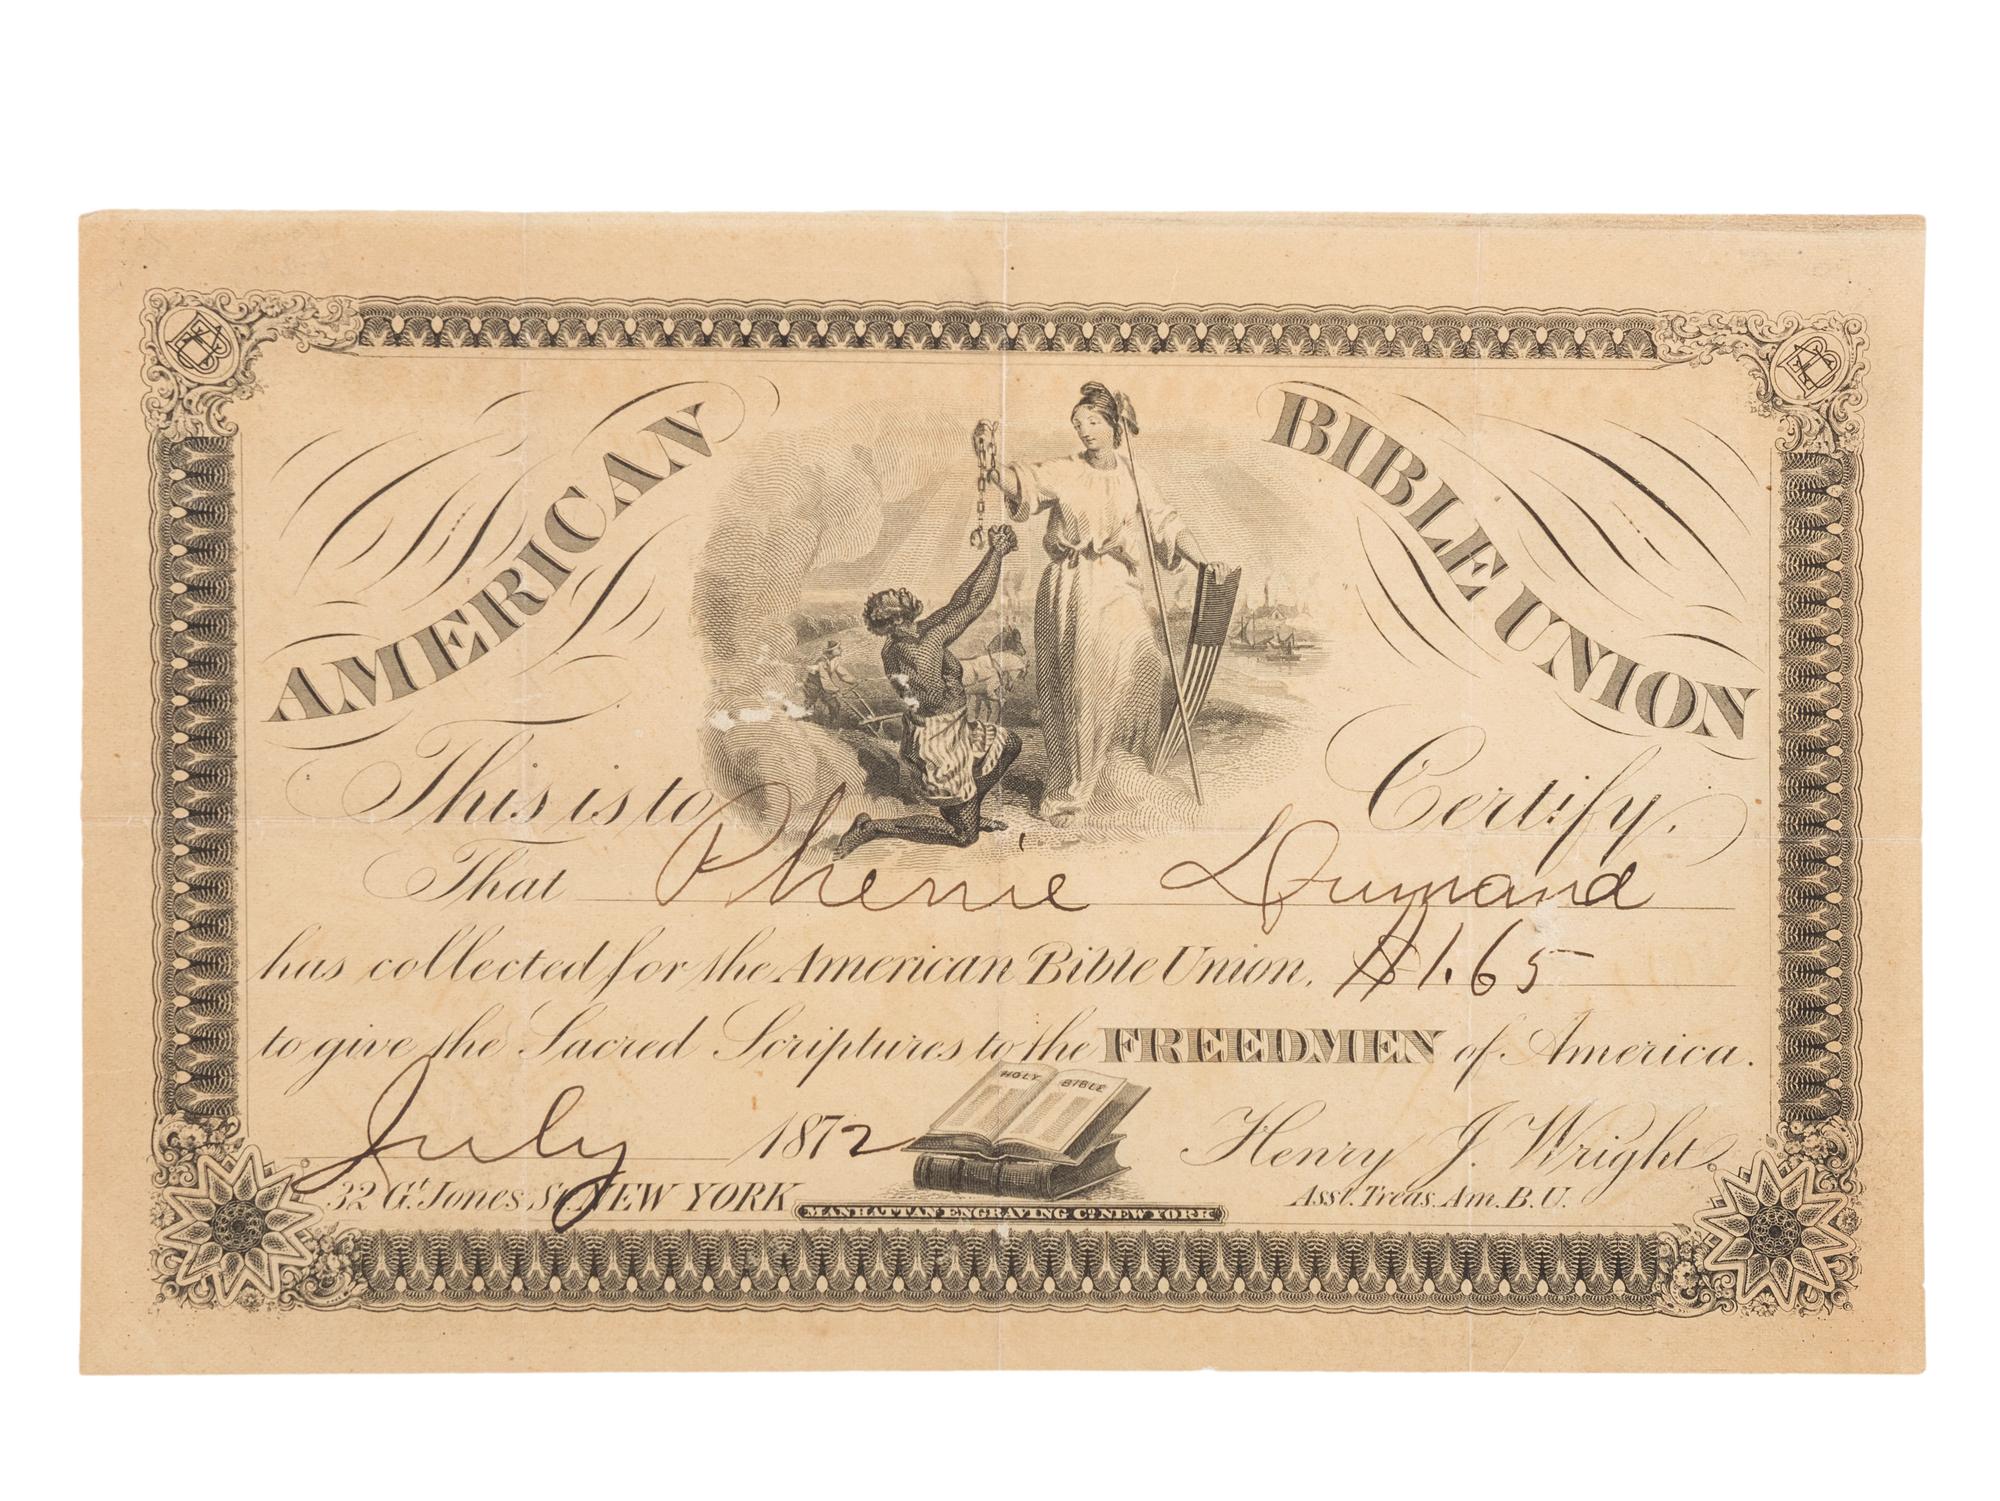 AMERICAN BIBLE UNION
This is to Certify,
That Phenie Durnand
has collected for the American Bible Union, $1.65
to give the Sacred Scriptures to the FREEDMEN of America.
HOLY BIBLE
July 1872 Henry J. Wright.
32 Gt. Jones St. NEW YORK Asst. Treas. Am. B. U.
MANHATTAN ENGRAVING Co. NEW YORK